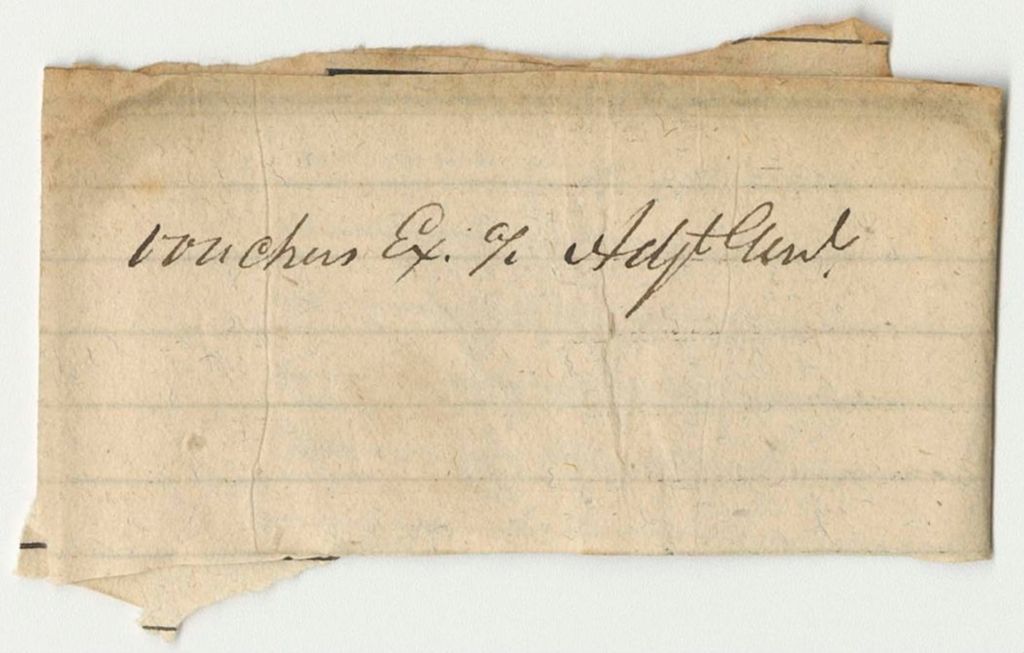 vouchers Ex. a/c Adjt Genl.